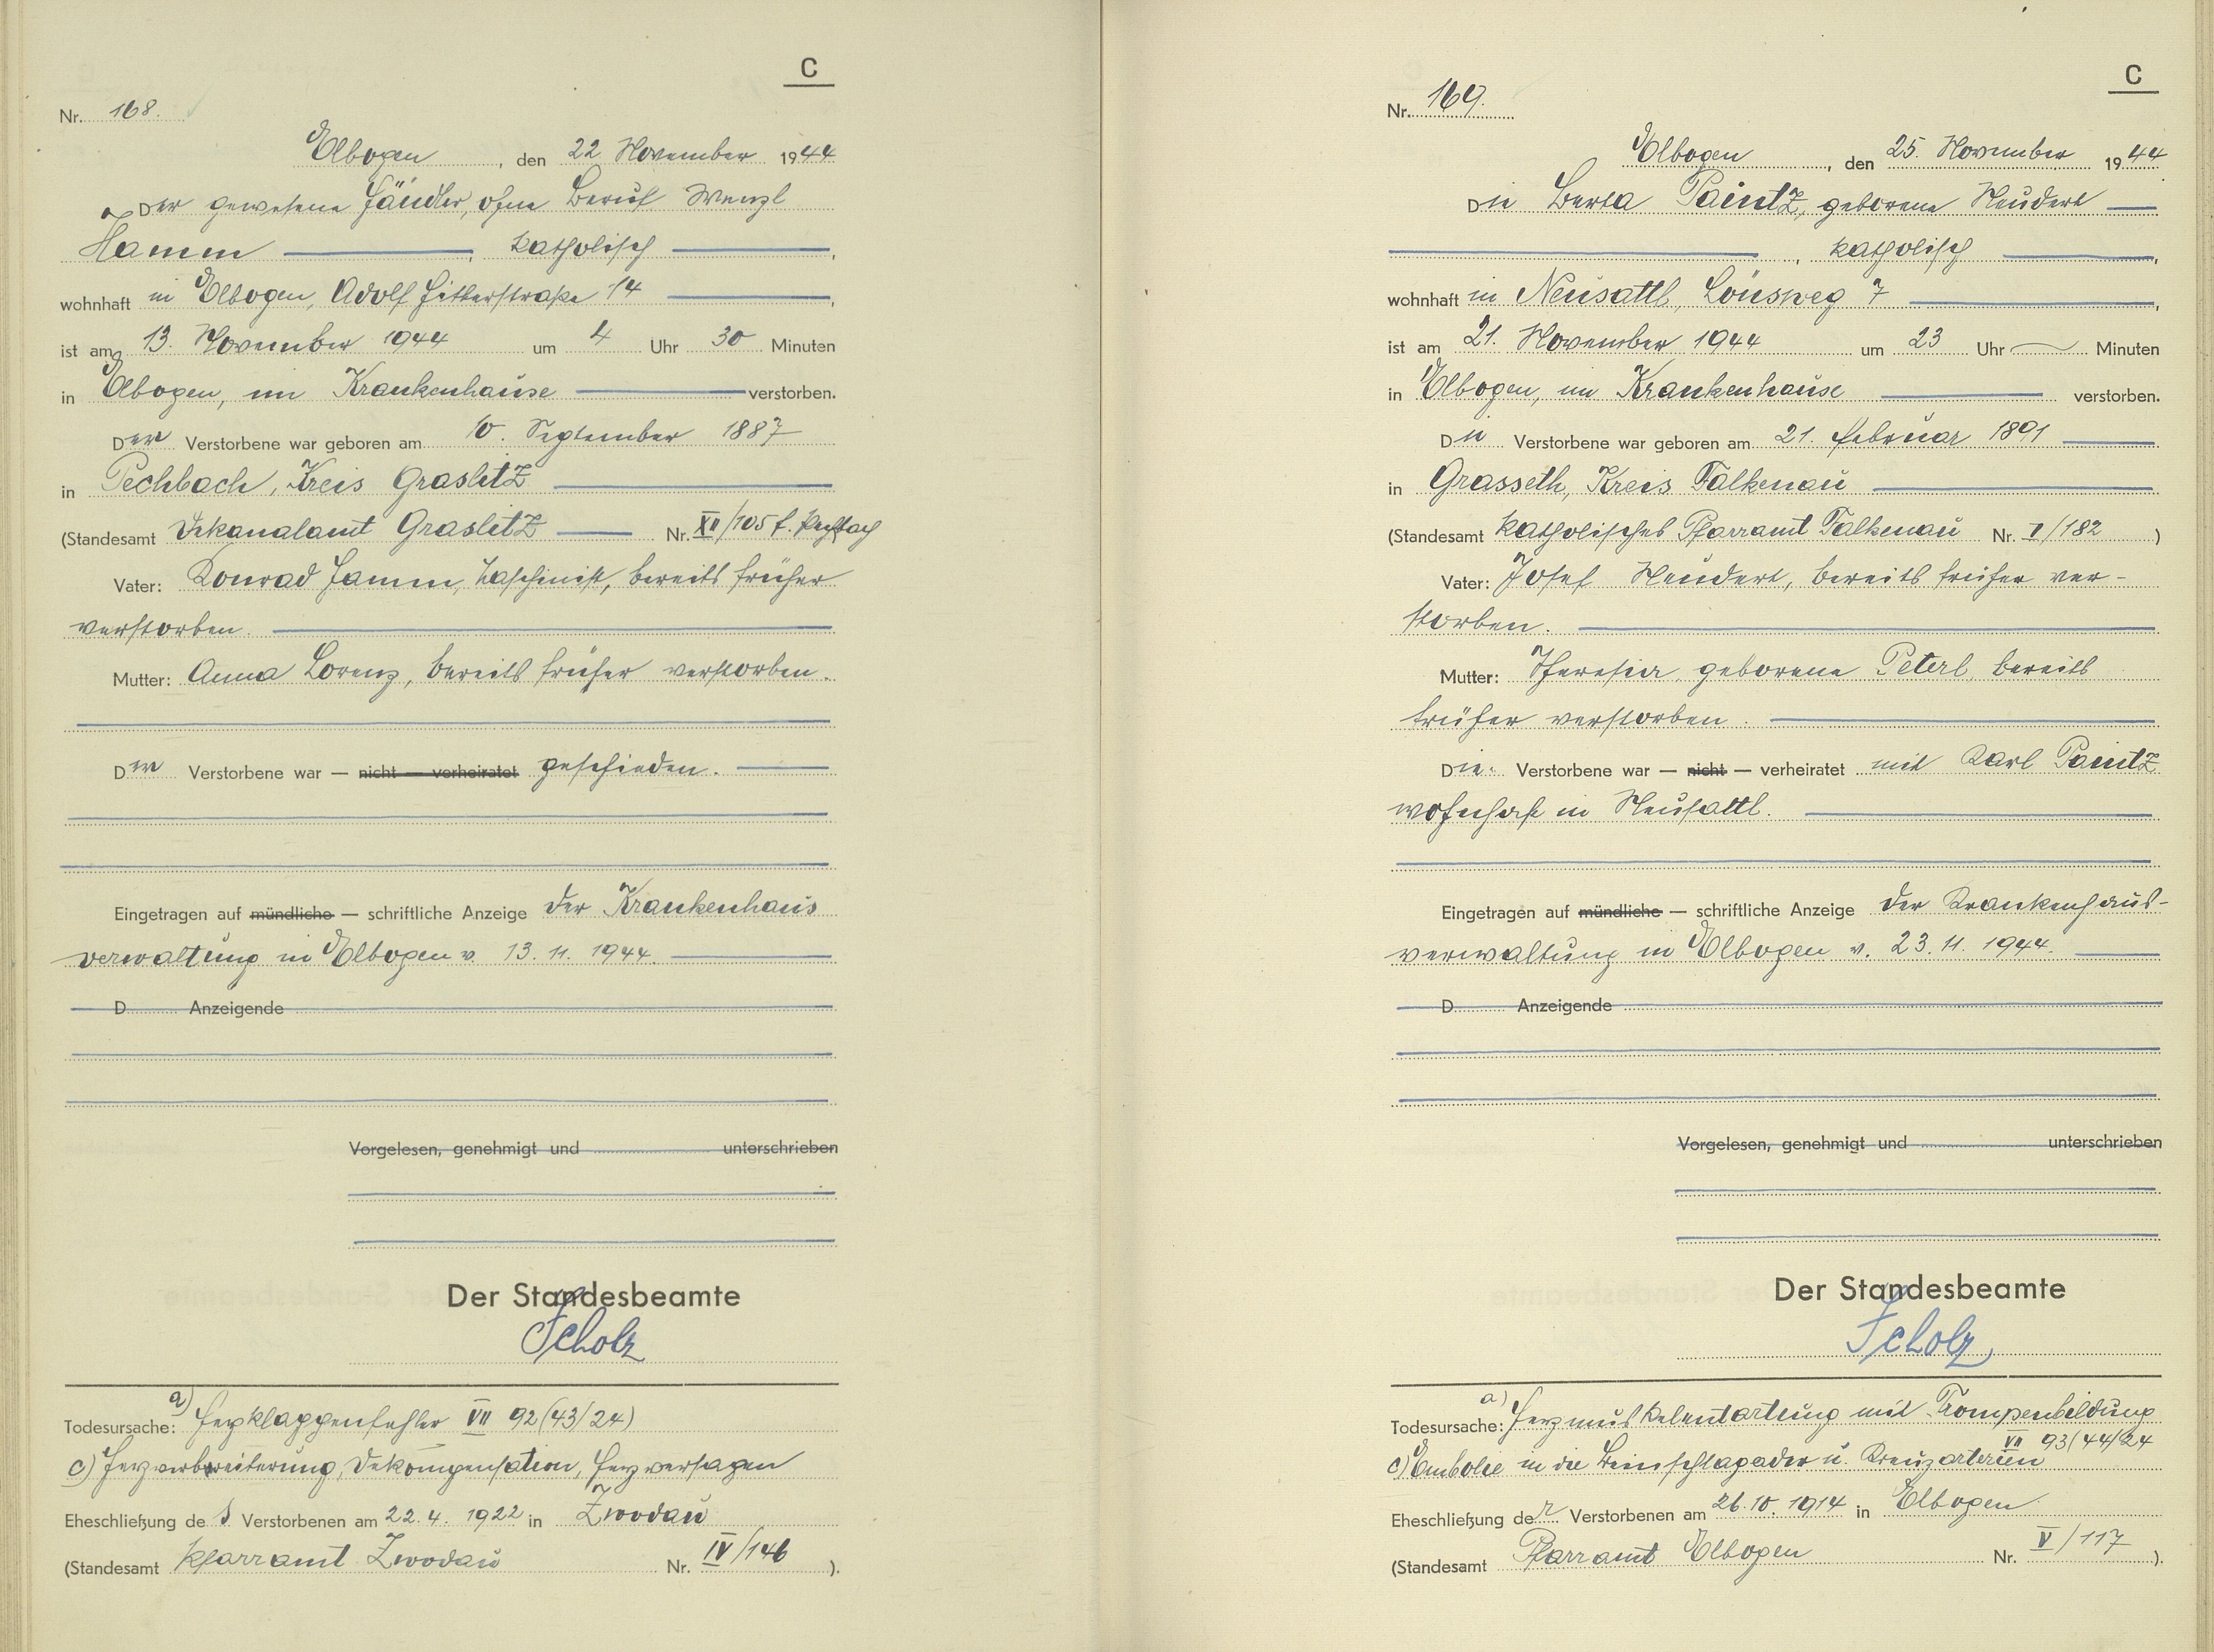 C
Nr. 168.
Elbogen, den 22 November 1944
Der gewesene Händler, ohne Beruf Wenzl
Hamm, katholisch,
wohnhaft in Elbogen, Adolf Hitlerstraße 14,
ist am 13. November 1944 um 4 Uhr 30 Minuten
in Elbogen, im Krankenhause verstorben.
Der Verstorbene war geboren am 10. September 1887
in Pechbach, Kreis Graslitz
(Standesamt Dekanalamt Graslitz Nr. XII/105 f. Pechbach
Vater: Konrad Hamm, Maschinist, bereits früher
verstorben.
Mutter: Anna Lorenz, bereits früher verstorben.
Der Verstorbene war — nicht — verheiratet geschieden.
Eingetragen auf mündliche — schriftliche Anzeige der Krankenhaus
verwaltung in Elbogen v. 13. 11. 1944.
D Anzeigende
Vorgelesen, genehmigt und unterschrieben
Der Standesbeamte
Scholz
Todesursache: a) Herzklappenfehler VII 92 (43/24)
c) Herzverbreiterung, Dekompensation, Herzversagen
Eheschließung des Verstorbenen am 22. 4. 1922 in Zwodau
(Standesamt Pfarramt Zwodau Nr. IV/146).
C
Nr. 169.
Elbogen, den 25. November 1944
Die Berta Paintz, geborene Neudert
, katholisch,
wohnhaft in Neusattl, Lönsweg 7,
ist am 21. November 1944 um 23 Uhr — Minuten
in Elbogen, im Krankenhause verstorben.
Die Verstorbene war geboren am 21. Februar 1891
in Grasseth, Kreis Falkenau
(Standesamt katholisches Pfarramt Falkenau Nr. I/182)
Vater: Josef Neudert, bereits früher ver-
storben.
Mutter: Theresia, geborene Peterl, bereits
früher verstorben.
Die Verstorbene war — nicht — verheiratet mit Karl Paintz
wohnhaft in Neusattl.
Eingetragen auf mündliche — schriftliche Anzeige der Krankenhaus-
verwaltung in Elbogen v. 23. 11. 1944.
D Anzeigende
Vorgelesen, genehmigt und unterschrieben
Der Standesbeamte
Scholz
Todesursache: a) Herzmuskelentartung mit Trompenbildung
VII 93 (44/24
c) Embolie in die Beinschlagader u. Kreuzarterien
Eheschließung der Verstorbenen am 26. 10. 1914 in Elbogen
(Standesamt Pfarramt Elbogen Nr. V/117).